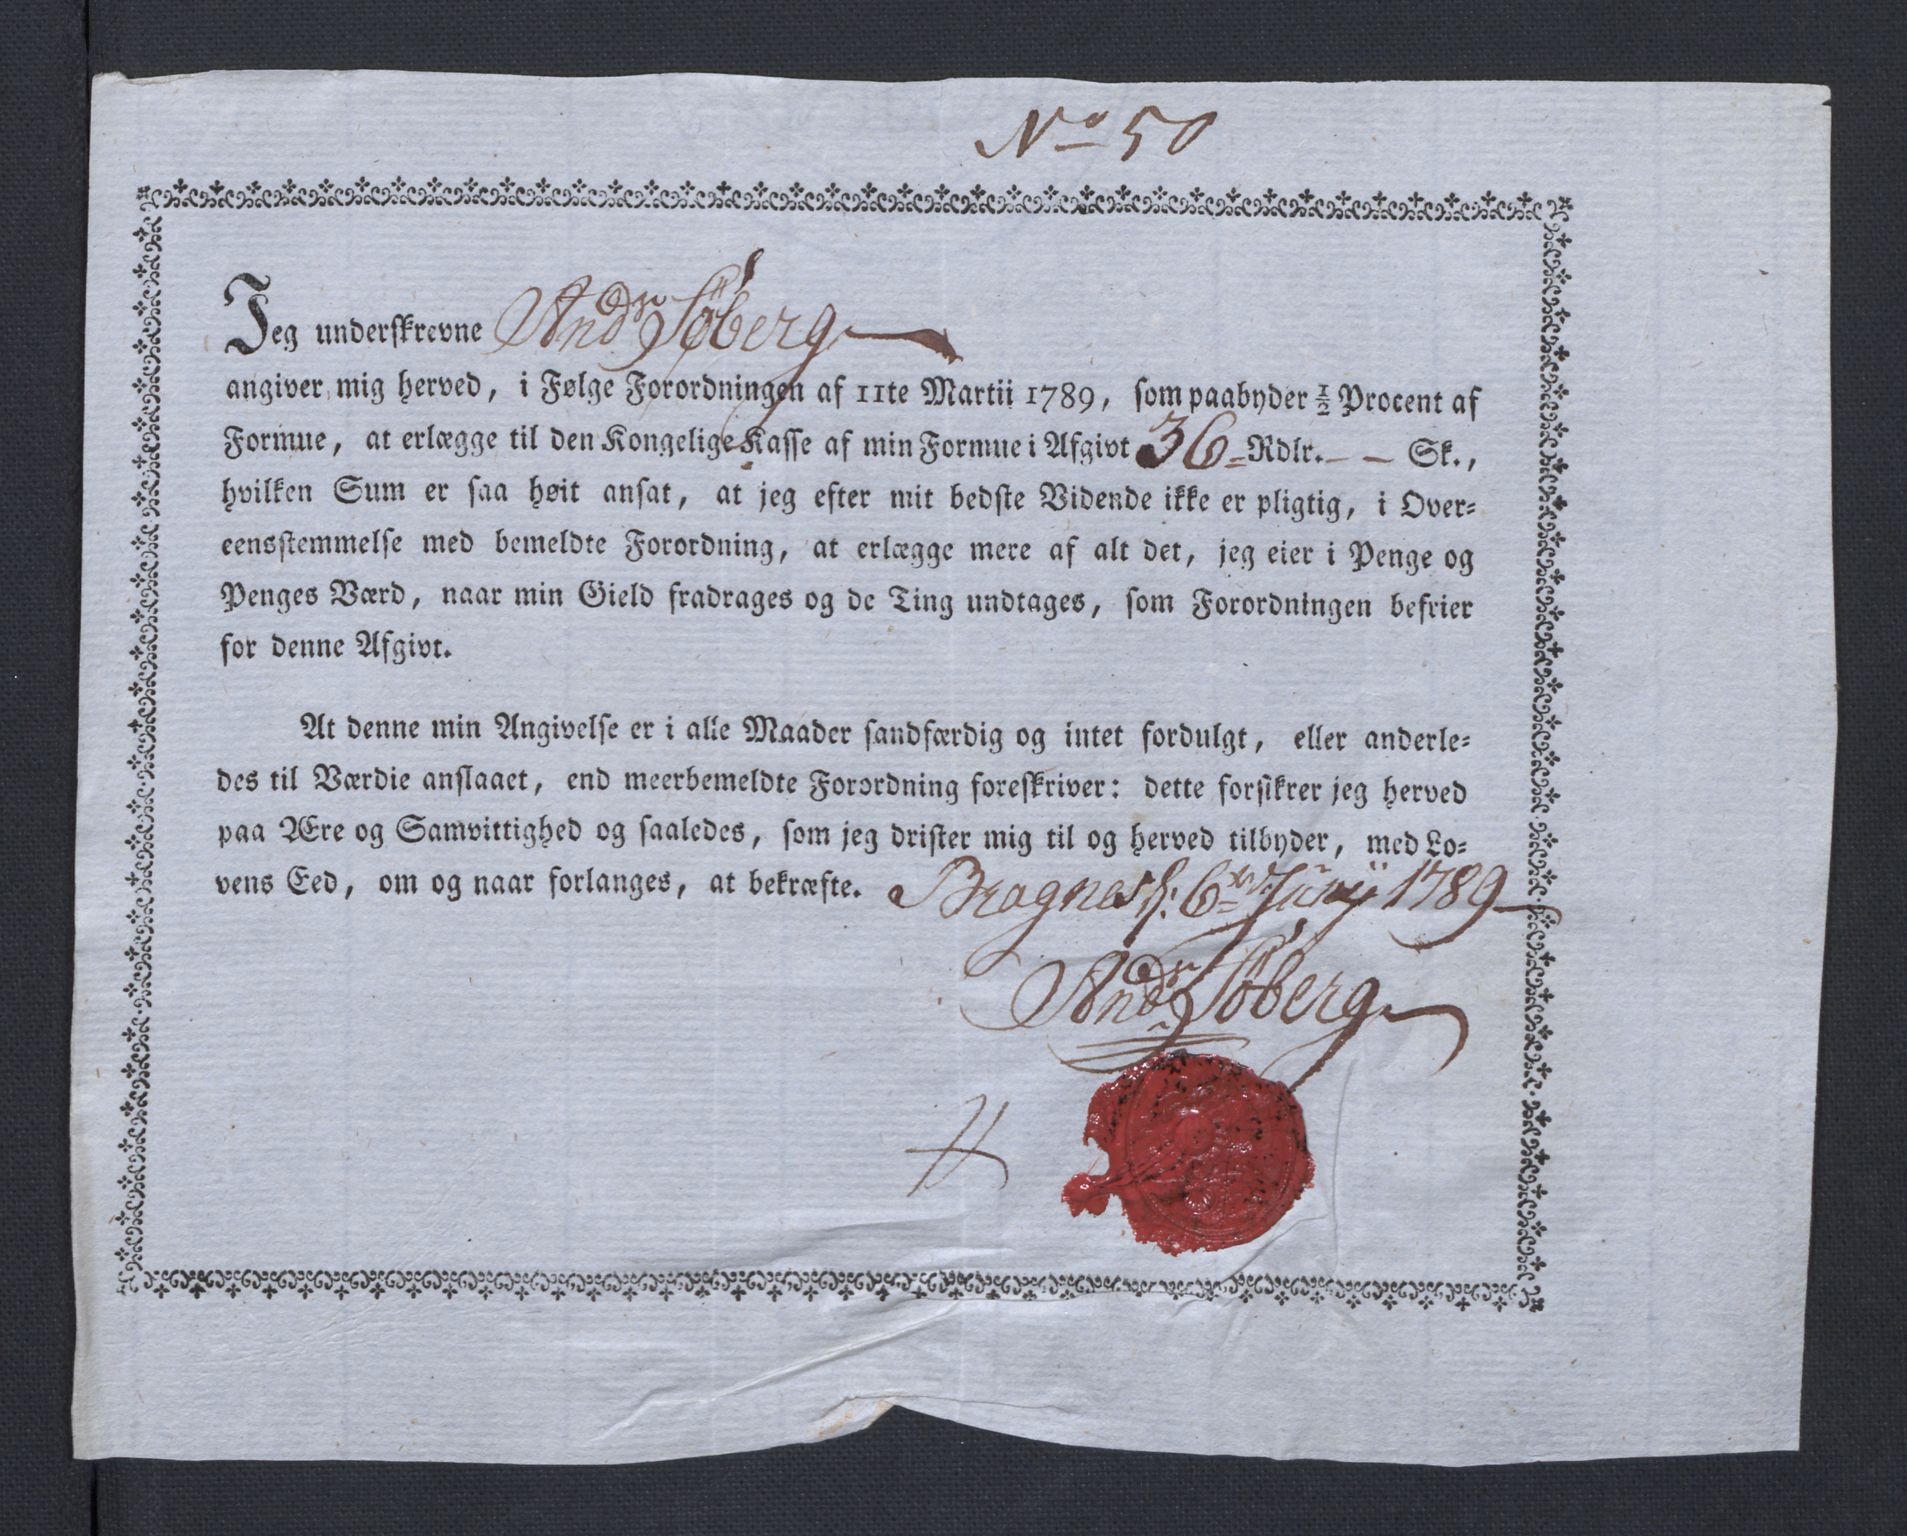 No 50
Jeg underskrevne Andr Søberg
angiver mig herved, i Følge Forordningen af 11te Martii 1789, som paabyder 1/2 Procent af
Formue, at erlægge til den Kongelige Kasse af min Formue i Afgivt 36 Rdlr. - - Sk.,
hvilken Sum er saa høit ansat, at jeg efter mit bedste Vidende ikke er pligtig, i Over=
eensstemmelse med bemeldte Forordning, at erlægge mere af alt det, jeg eier i Penge og
Penges Værd, naar min Gield fradrages og de Ting undtages, som Forordningen befrier
for denne Afgivt.
At denne min Angivelse er i alle Maader sandfærdig og intet fordulgt, eller anderle=
des til Værdie anslaaet, end meerbemeldte Forordning foreskriver: dette forsikrer jeg herved
paa Ære og Samvittighed og saaledes, som jeg drister mig til og herved tilbyder, med Lo=
vens Eed, om og naar forlanges, at bekræfte. Bragness: 6te Junij 1789
Andr Søberg